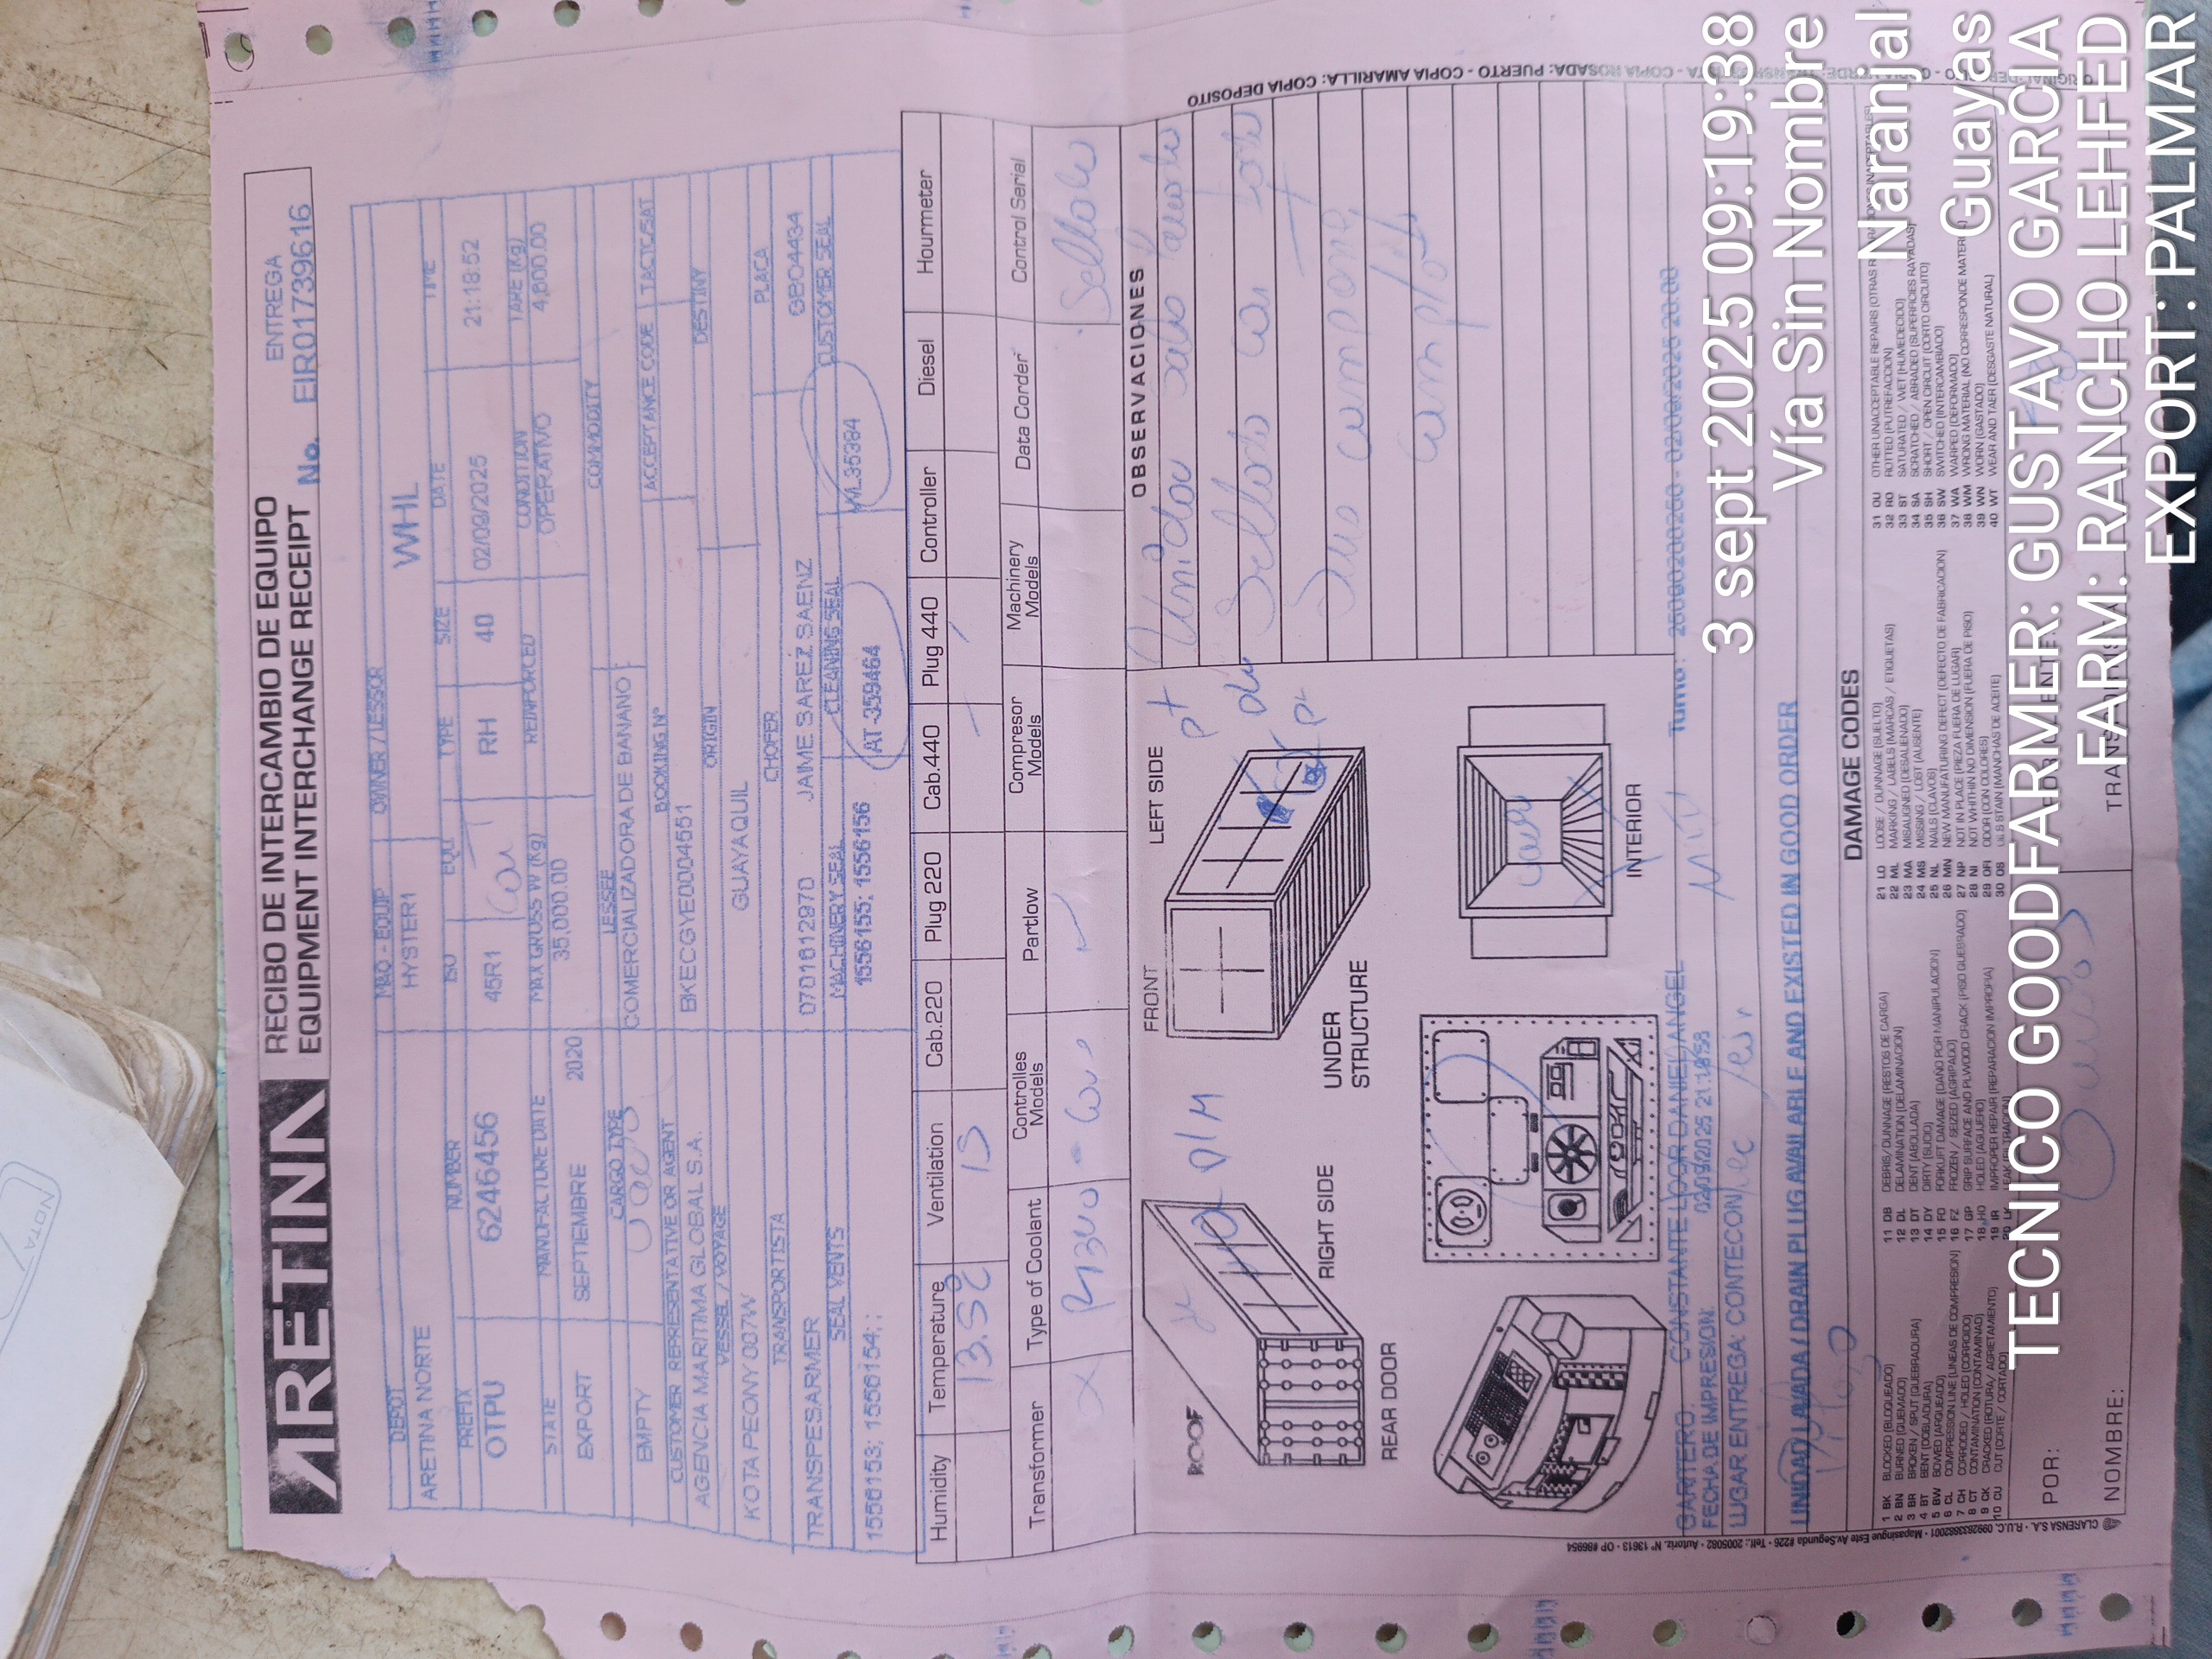 NOTA
ARETINA
RECIBO DE INTERCAMBIO DE EQUIPO
EQUIPMENT INTERCHANGE RECEIPT
ENTREGA
No. EIR01739616
DEPOT MAQ - EQUIP OWNER / LESSOR
ARETINA NORTE HYSTER1 WHL
PREFIX NUMBER ISO EQU. TYPE SIZE DATE TIME
OTPU 6246456 45R1 RH 40 02/09/2025 21:18:52
STATE MANUFACTURE DATE MAX GROSS W (Kg) REINFORCED CONDITION TARE (Kg)
EXPORT SEPTIEMBRE 2020 35,000.00 OPERATIVO 4,600.00
CARGO TYPE LESSEE COMMODITY
EMPTY COMERCIALIZADORA DE BANANO
CUSTOMER REPRESENTATIVE OR AGENT BOOKING Nº ACCEPTANCE CODE TACTC/SAT
AGENCIA MARITIMA GLOBAL S.A. BKECGYE0004551
VESSEL / VOYAGE ORIGIN DESTINY
KOTA PEONY 007W GUAYAQUIL
TRANSPORTISTA CHOFER PLACA
TRANSPESARMER 0701612970 JAIME SAREZ SAENZ GBO4434
SEAL VENTS MACHINERY SEAL CLEANING SEAL CUSTOMER SEAL
1556153; 1556154; ; 1556155; 1556156 AT-359464 WL35384
Humidity Temperature Ventilation Cab.220 Plug 220 Cab.440 Plug 440 Controller Diesel Hourmeter
13.5°C 15
Transformer Type of Coolant Controlles Models Partlow Compresor Models Machinery Models Data Corder Control Serial
Sellado
ROOF
RIGHT SIDE
REAR DOOR
D/M
FRONT
LEFT SIDE
UNDER STRUCTURE
INTERIOR
OBSERVACIONES
GARITERO: CONSTANTE LOOR DANIEL ANGEL Turno: 25090200250 - 02/09/2025 20:00
FECHA DE IMPRESION: 02/09/2025 21:18:58
LUGAR ENTREGA: CONTECON
UNIDAD LAVADA / DRAIN PLUG AVAILABLE AND EXISTED IN GOOD ORDER
DAMAGE CODES
1 BK BLOCKED (BLOQUEADO)
2 BN BURNED (QUEMADO)
3 BR BROKEN / SPUT (QUEBRADURA)
4 BT BENT (DOBLADURA)
5 BW BOWED (ARQUEADO)
6 CL COMPRESSION LINE (LINEAS DE COMPRESION)
7 CH CORRODED / HOLED (CORROIDO)
8 CT CONTAMINATION (CONTAMINAD)
9 CK CRACKED (ROTURA/ AGRIETAMIENTO)
10 CU CUT (CORTE / CORTADO)
11 DB DEBRIS/DUNNAGE (RESTOS DE CARGA)
12 DL DELAMINATION (DELAMINACION)
13 DT DENT (ABOLLADA)
14 DY DIRTY (SUCIO)
15 FD FORKUFT DAMAGE (DAÑO POR MANIPULACION)
16 FZ FROZEN / SEIZED (AGRIPADO)
17 GP GRIP SURFACE AND PLWOOD CRACK (PISO QUEBRADO)
18 HO HOLED (AGUJERO)
19 IR IMPROPER REPAIR (REPARACION IMPROPIA)
20 LK LEAK (FILTRACION)
21 LO LOOSE / DUNNAGE (SUELTO)
22 ML MARKING / LABELS (MARCAS / ETIQUETAS)
23 MA MISAUGNED (DESALIENADO)
24 MS MISSING / LOST (AUSENTE)
25 NL NAILS (CLAVOS)
26 MN NEW MANUFATURING DEFECT (DEFECTO DE FABRICACION)
27 NP NOT IN PLACE (PIEZA FUERA DE LUGAR)
28 NI NOT WHITHIN NO DIMENSION (FUERA DE PISO)
29 OFI ODOR (CON COLORES)
30 OS OILS STAIN (MANCHAS DE ACEITE)
31 OU OTHER UNACCEPTABLE REPAIRS (OTRAS REPARACIONES INACEPTABLES)
32 RO ROTTED (PUTREFACCION)
33 ST SATURATED / WET (HUMEDECIDO)
34 SA SCRATCHED / ABRADED (SUPERFICIES RAYADAS)
35 SH SHORT / OPEN CIRCUIT (CORTO CIRCUITO)
36 SW SWITCHED (INTERCAMBIADO)
37 WA WARPED (DEFORMADO)
38 WM WRONG MATERIAL (NO CORRESPONDE MATERIAL)
39 WN WORN (GASTADO)
40 WT WEAR AND TAER (DESGASTE NATURAL)
POR:
NOMBRE:
POR CLIENTE:
TRANSPORTISTA
CLARENSA S.A. • R.U.C. 0992833882001 • Mapasingue Este Av.Segunda #226 • Telf.: 2005082 • Autoriz. Nº 13613 • OP #86954
COPIA ROSADA: PUERTO - COPIA AMARILLA: COPIA DEPOSITO
3 sept 2025 09:19:38
Vía Sin Nombre
Naranjal
Guayas
TECNICO GOODFARMER: GUSTAVO GARCIA
FARM: RANCHO LEHFED
EXPORT: PALMAR